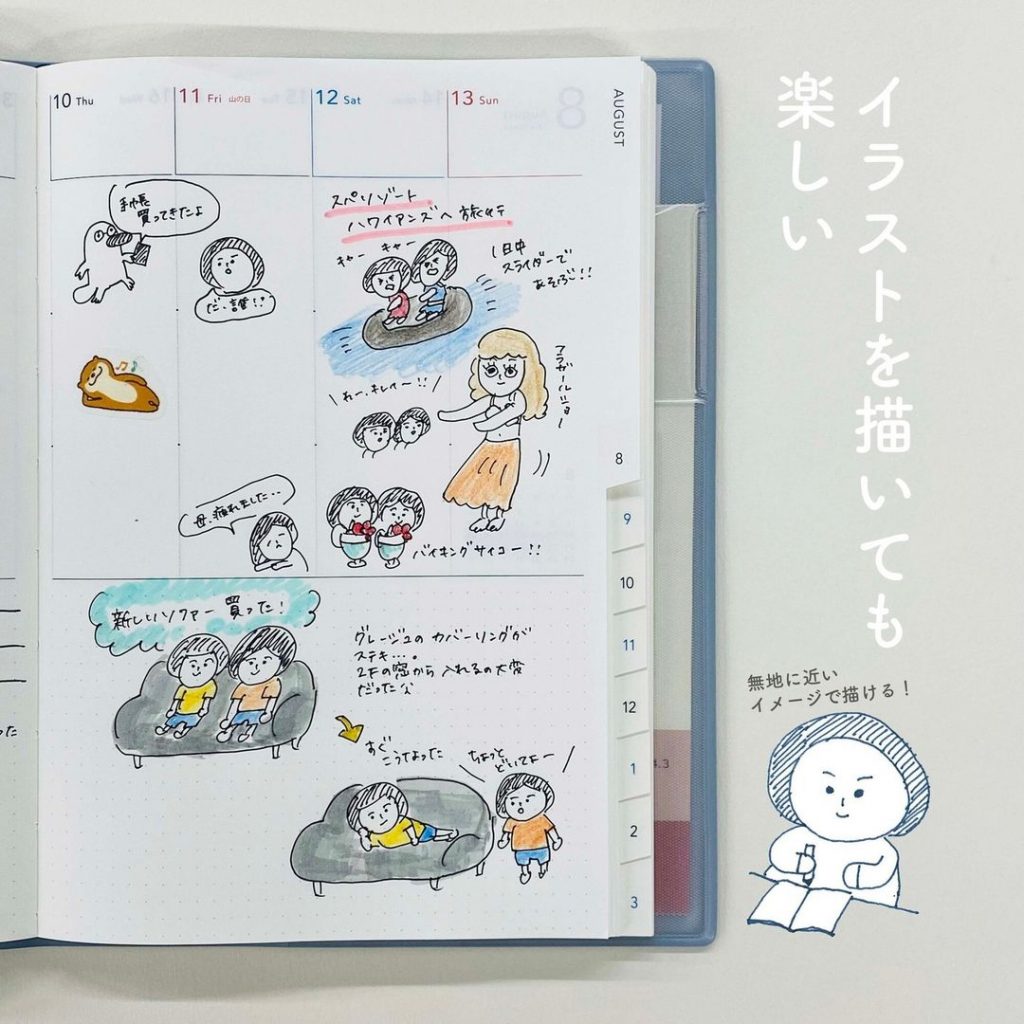 イラストを描いても
楽しい
AUGUST
8
10 Thu
11 Fri 山の日
12 Sat
13 Sun
手帳
買ってきたよ
だ、誰!?
スパリゾート
ハワイアンズへ 旅行
キャー
キャー
日中
スライダーで
あそぶ!!
わー、キレイー!!
フラガールショー
母、疲れました..
バイキングサイコー!!
新しいソファー 買った!
グレージュの カバーリングが
ステキ…。
2Fの窓から 入れるの大変
だった
すぐ
こうなった
ちょっと
どいてよー
8
9
10
11
12
1
2
3
4.3
無地に近い
イメージで描ける!